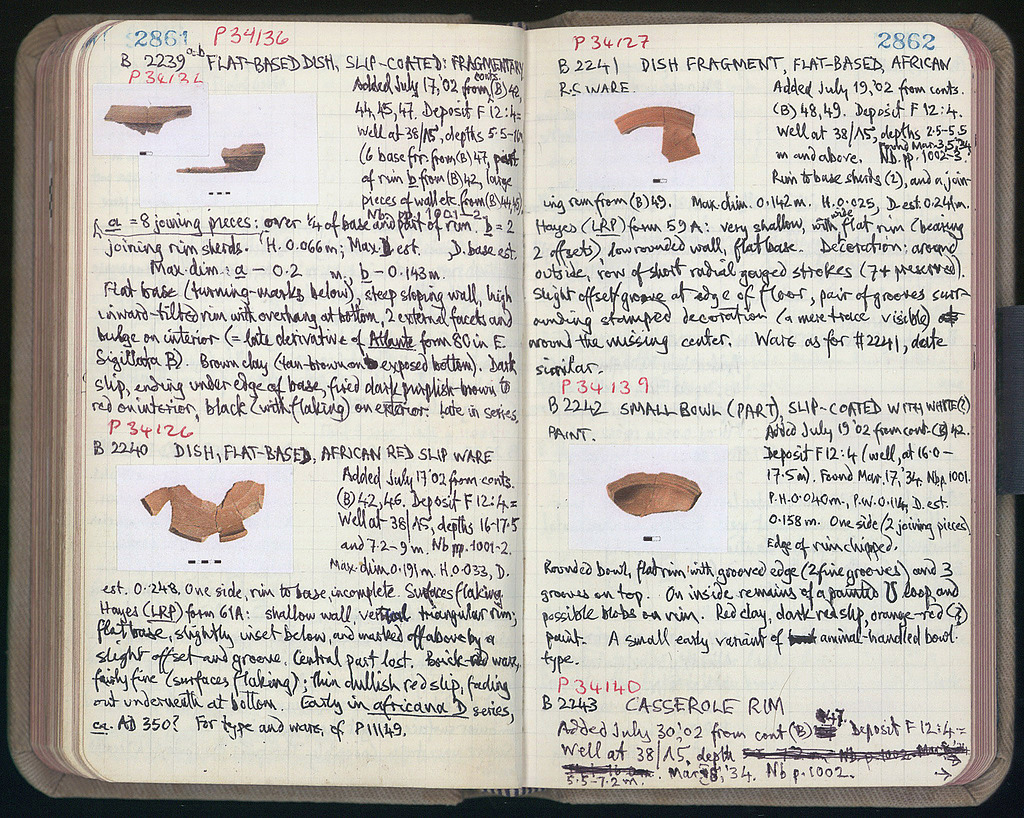 2861 P 34136
B 2239 a-b FLAT-BASED DISH, SLIP-COATED: FRAGMENTARY
P 3413
Added July 17, '02 from conts. (B) 42,
44, 45, 47. Deposit F 12:4 =
Well at 38/ΛΣ, depths 5.5-
(6 base frr from (B) 47, part
of rim b from (B) 42, large
pieces of wall etc. from (B) 44, 45)
Nb. pp. 1001-2.
a = 8 joining pieces: over ¼ of base and part of rim. b = 2
joining rim sherds. H. 0.066m; Max. D est. D. base est.
Max. dim.: a - 0.2 m, b - 0.143m.
Flat base (turning-marks below), steep sloping wall, high
inward-tilted rim with overhang at bottom, 2 external facets and
bulge on interior (= late derivative of Atlante form 80 in E
Sigillata B). Brown clay (tan-brown on exposed bottom). Dark
slip, ending under edge of base, fired dark purplish-brown to
red on interior, black (with flaking) on exterior. Late in series,
P 34126
B 2240 DISH, FLAT-BASED, AFRICAN RED SLIP WARE
Added July 17 '02 from conts.
(B) 42, 46. Deposit F 12:4 =
Well at 38/ΛΣ, depths 16-17.5
and 7.2-9 m. Nb pp. 1001-2.
Max. dim 0.191 m. H. 0.033, D.
est. 0.248. One side, rim to base, incomplete. Surfaces flaking
Hayes (LRP) form 61A: shallow wall, vertical triangular rim;
flat base, slightly inset below, and marked off above by a
slight offset and groove. Central part lost. Brick-red ware,
fairly fine (surfaces flaking); thin dullish red slip, fading
out underneath at bottom. Early in africana D series,
ca. AD 350? For type and ware, cf. P 11149.
P 34127 2862
B 2241 DISH FRAGMENT, FLAT-BASED, AFRICAN
R.S WARE.
Added July 19, '02 from conts.
(B) 48, 49. Deposit F 12:4 =
Well at 38/ΛΣ, depths 2.5-5.5
m and above. Found Mar. 3, 5, '34
Nb. pp. 1002-3.
Rim to base sherds (2), and a join-
ing rim from (B) 49. Max. dim. 0.142m. H. 0.025, D. est. 0.241m.
Hayes (LRP) form 59A: very shallow, with wide flat rim (bearing
2 offsets), low rounded wall, flat base. Decoration: around
outside, row of short radial gouged strokes (7+ preserved).
Slight offset/groove at edge of floor, pair of grooves surr-
ounding stamped decoration (a mere trace visible)
around the missing center. Ware as for #2241, date
similar.
P 34139
B 2242 SMALL BOWL (PART), SLIP-COATED WITH WHITE(?)
PAINT.
Added July 19 '02 from cont. (B) 42.
Deposit F 12:4 (well, at 16.0-
17.5m). Found Mar. 17, '34. Nb p. 1001.
P.H. 0.040m, P.W. 0.114, D. est.
0.158 m. One side (2 joining pieces)
Edge of rim chipped.
Rounded bowl, flat rim with grooved edge (2 fine grooves) and 3
grooves on top. On inside remains of a painted U loop, and
possible blobs on rim. Red clay, dark red slip, orange-red (?)
paint. A small early variant of animal-handled bowl
type.
P 34140
B 2243 CASSEROLE RIM
Added July 30, '02 from cont (B) 47. Deposit F 12:4 =
Well at 38/ΛΣ, depth
5.5-7.2 m. Mar 8, '34. Nb p. 1002. →